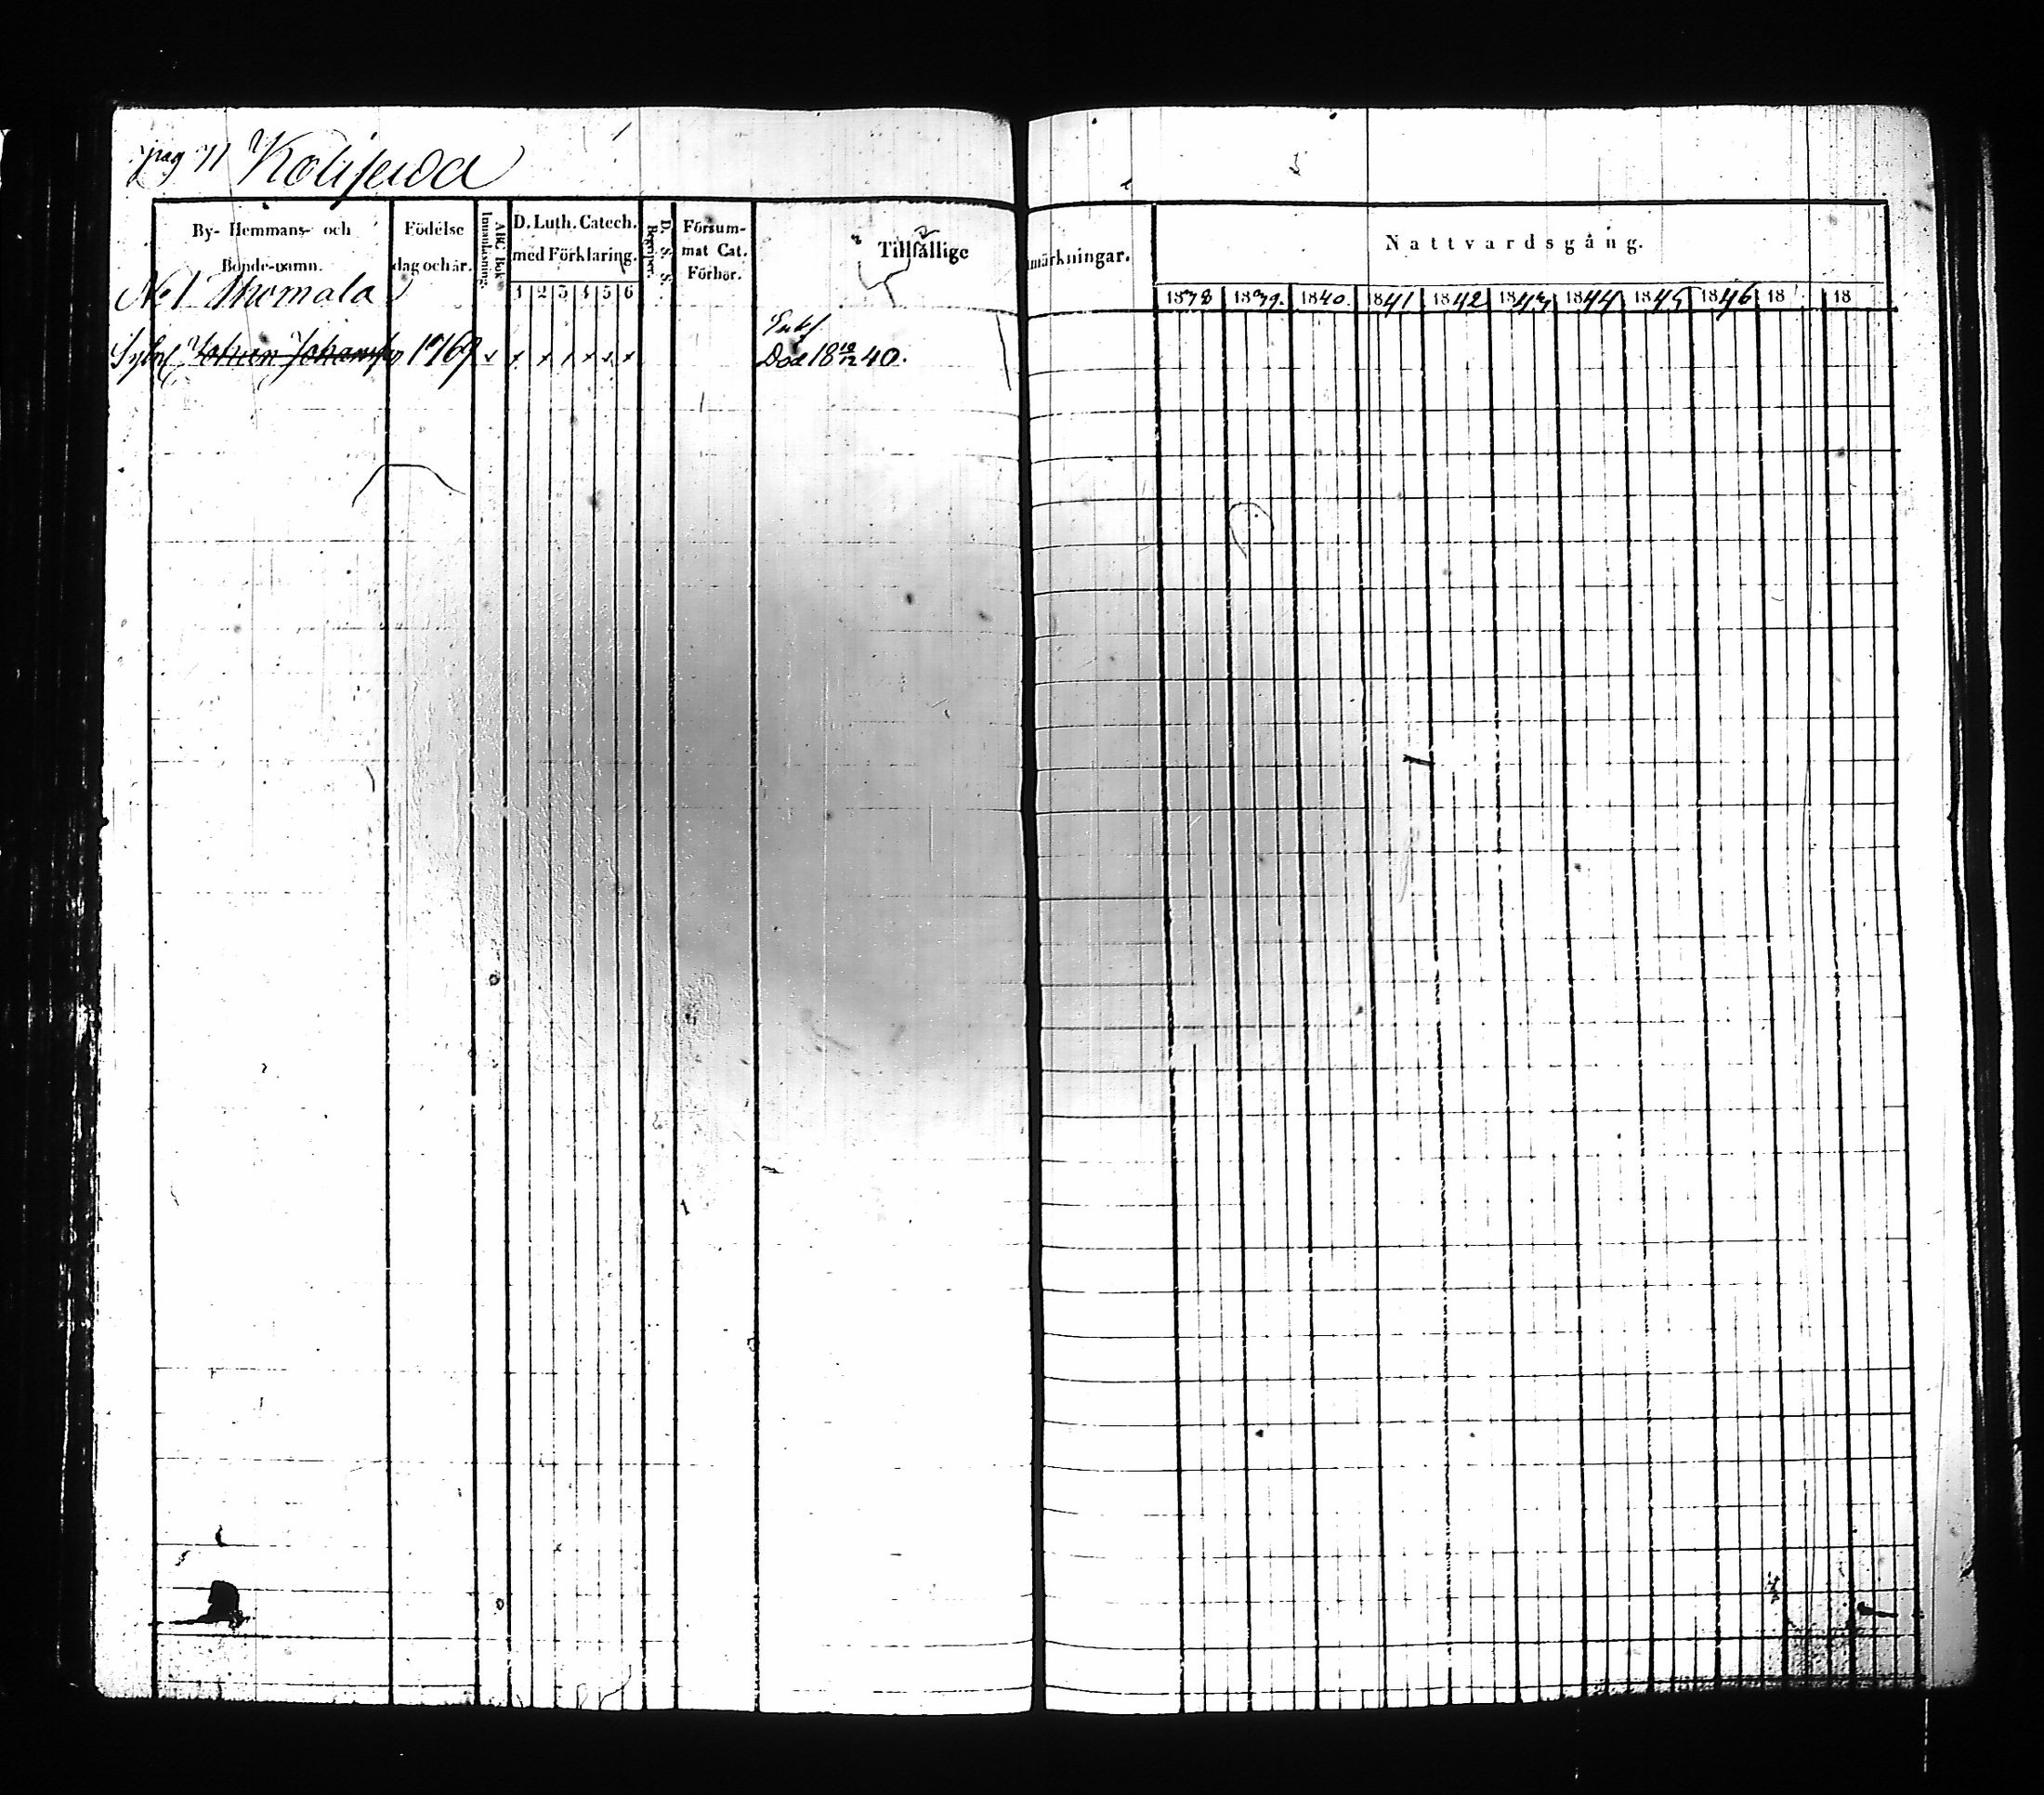 pag 71
By- Hemmans- och Bonde-namn.
Födelse dag och år.
ABC Bok Innanläsning.
D. Luth. Catech. med Förklaring.
1 2 3 4 5 6
D. S. S. Begriper.
Försum- mat Cat. Förhör.
Tillfällige
märkningar.
Nattvardsgång.
1838 1839. 1840. 1841 1842 1843 1844 1845 1846 18 18
No 1 Thomala
Johan Johansson 1769 x x x x x x x
Enkl
Död 18 10/12 40.